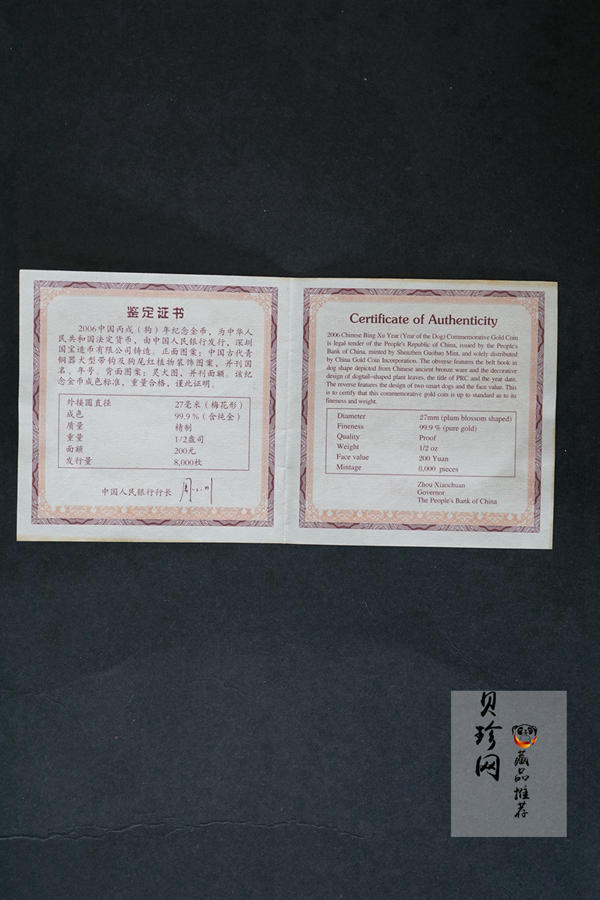 鉴定证书
2006中国丙戌（狗）年纪念金币，为中华人
民共和国法定货币，由中国人民银行发行，深圳
国宝造币有限公司铸造。正面图案：中国古代青
铜器犬型带钩及狗尾红植物装饰图案，并刊国
名、年号。背面图案：灵犬图，并刊面额。该纪
念金币成色标准，重量合格，谨此证明。
外接圆直径 27毫米（梅花形）
成色 99.9%（含纯金）
质量 精制
重量 1/2盎司
面额 200元
发行量 8,000枚
中国人民银行行长
Certificate of Authenticity
2006 Chinese Bing Xu Year (Year of the Dog) Commemorative Gold Coin
is legal tender of the People's Republic of China, issued by the People's
Bank of China, minted by Shenzhen Guobao Mint, and solely distributed
by China Gold Coin Incorporation. The obverse features the belt hook in
dog shape depicted from Chinese ancient bronze ware and the decorative
design of dogtail-shaped plant leaves, the title of PRC and the year date.
The reverse features the design of two smart dogs and the face value. This
is to certify that this commemorative gold coin is up to standard as to its
fineness and weight.
Diameter 27mm (plum blossom shaped)
Fineness 99.9 % (pure gold)
Quality Proof
Weight 1/2 oz
Face value 200 Yuan
Mintage 8,000 pieces
Zhou Xiaochuan
Governor
The People's Bank of China
贝珍网
藏品推荐